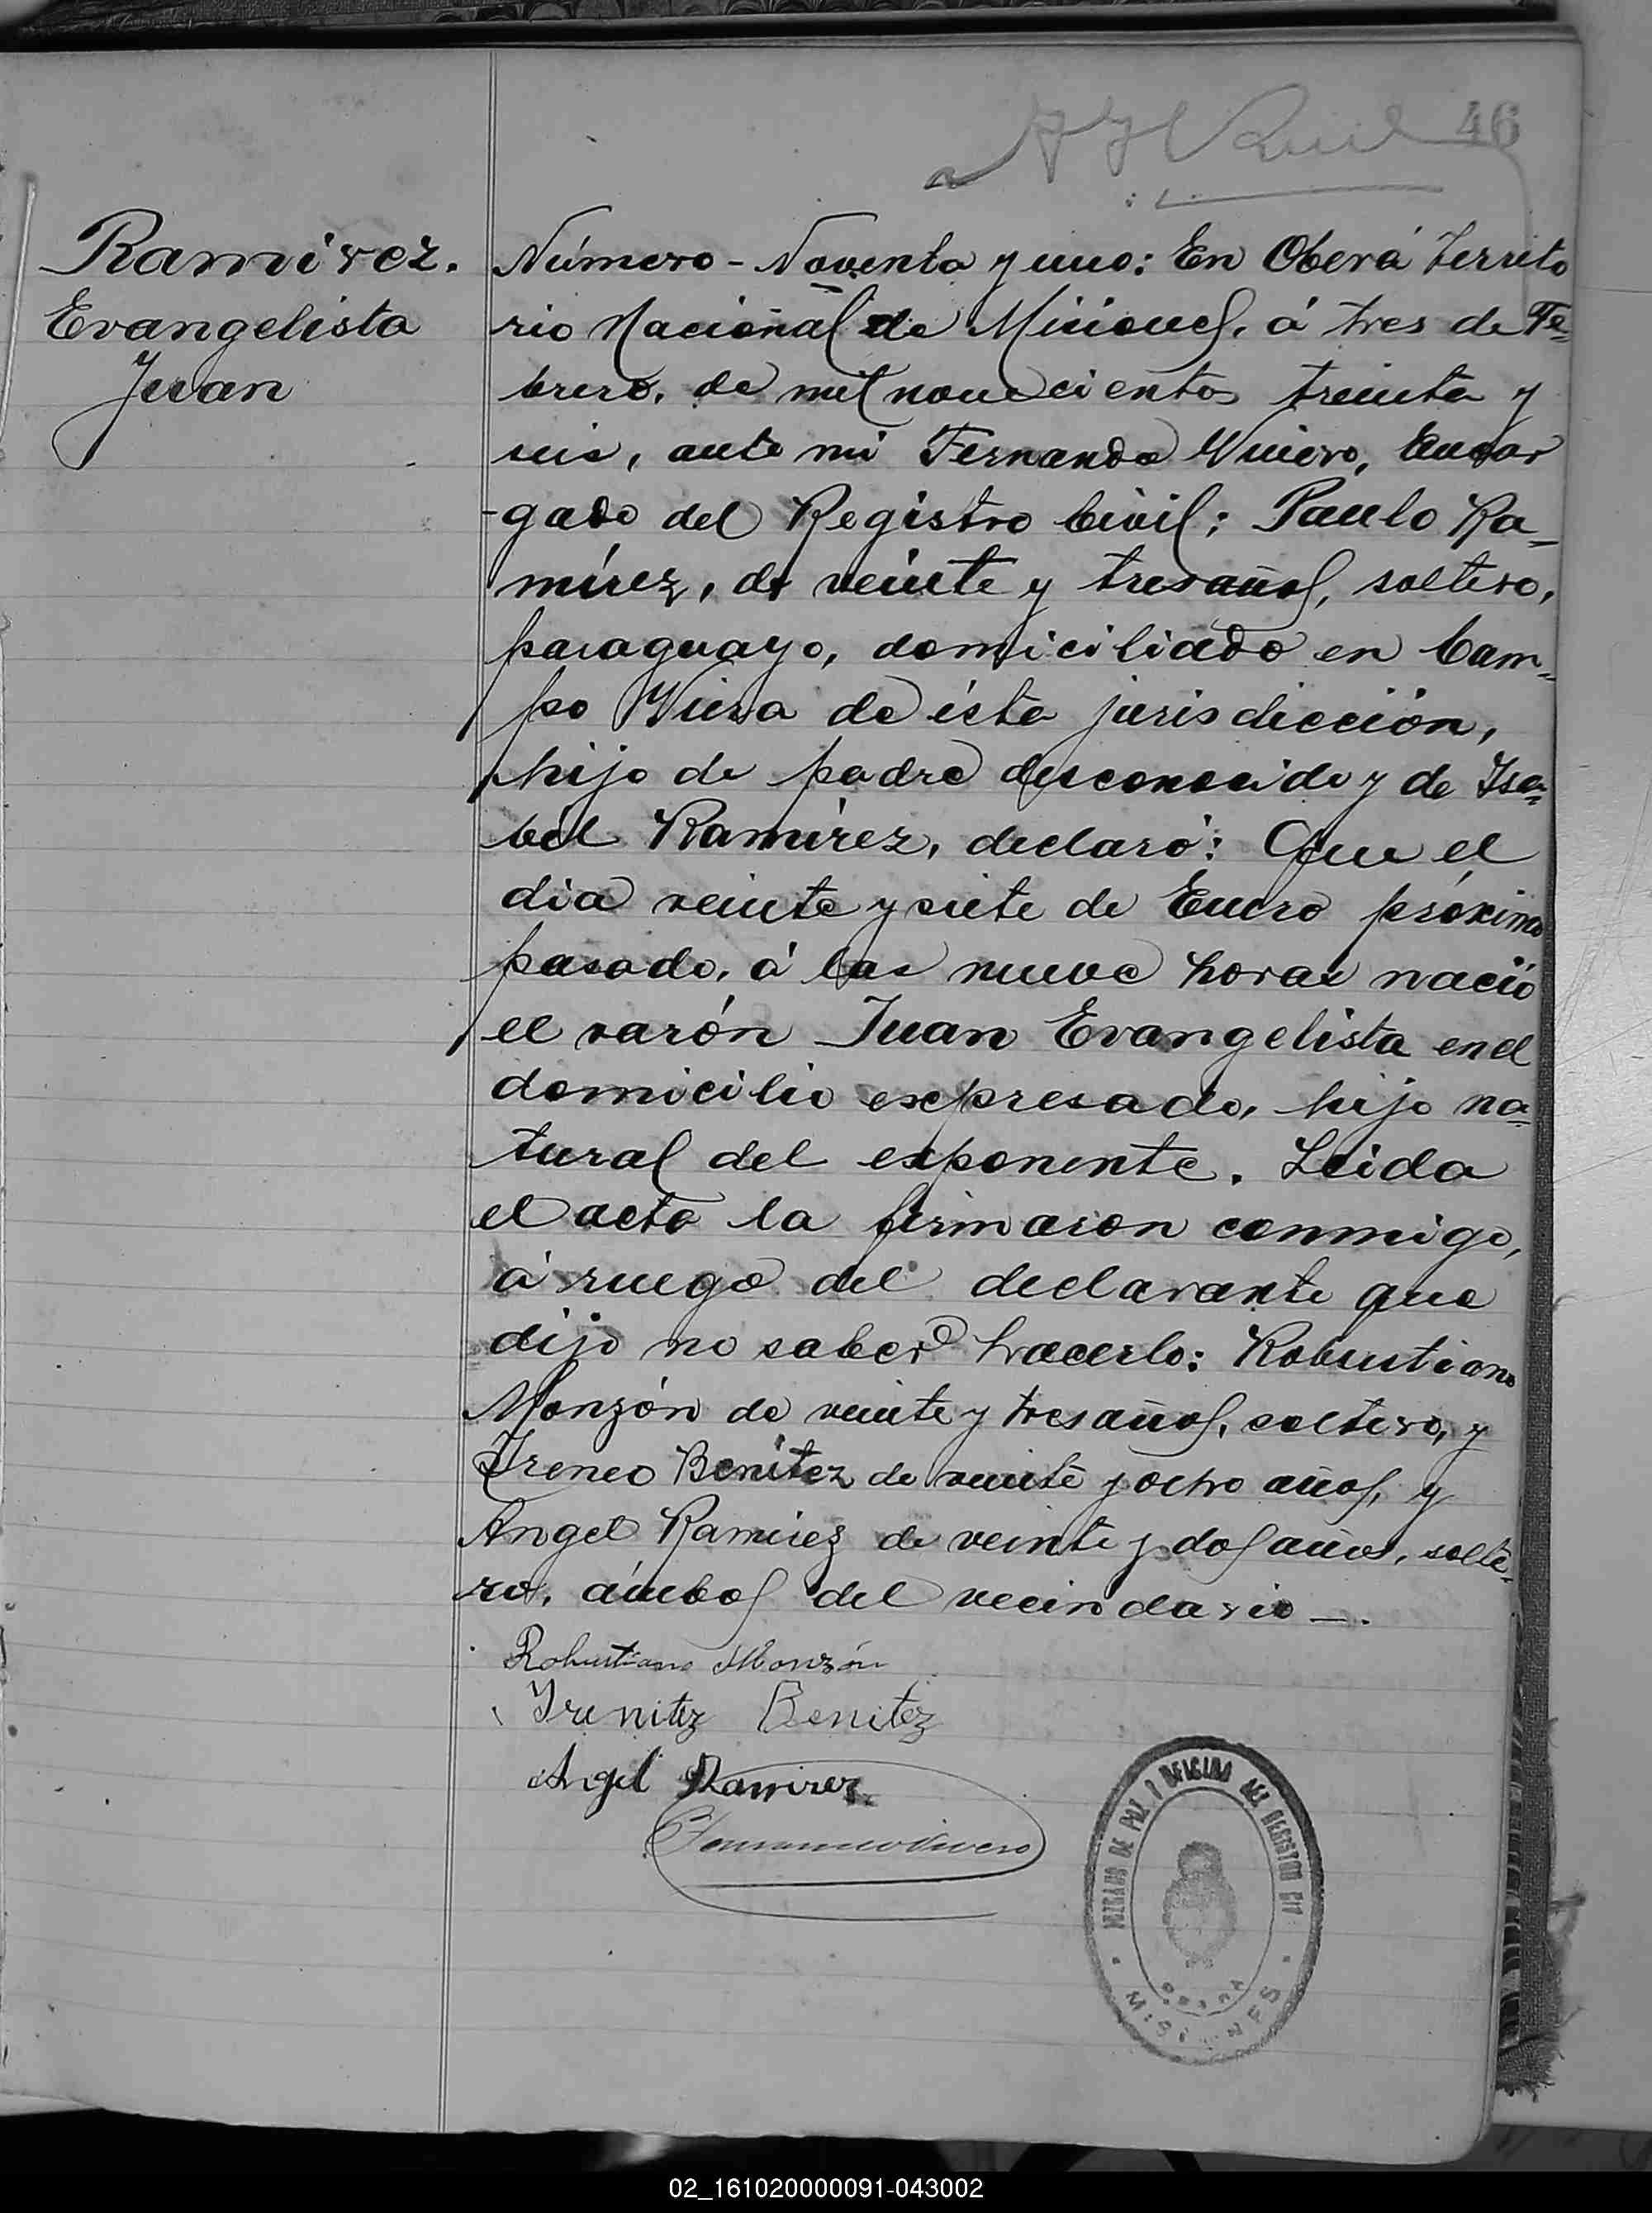 46
Ramirez.
Evangelista
Juan
Número - Noventa y uno: En Oberá Territo
rio Nacional de Misiones, á tres de Fe=
brero, de mil novecientos treinta y
seis, ante mi Fernando Vivero, Encar
-gado del Registro Civil; Paulo Ra=
mírez, de veinte y tres años, soltero,
paraguayo, domiciliado en Cam=
po Viera de ésta jurisdicción,
hijo de padre desconocido y de Isa=
bel Ramírez, declaró: Que el
dia veinte y siete de Enero próximo
pasado, á las nueve horas nació
el varón Juan Evangelista en el
domicilio expresado, hijo na=
tural del exponente. Leida
el acta la firmaron conmigo,
á ruego del declarante que
dijo no saber hacerlo: Robustiano
Monzón de veinte y tres años, soltero, y
Ireneo Benítez de veinte y ocho años, y
Angel Ramirez de veinte y dos años, solte=
ro, ámbos del vecindario —.
Robustiano Monzón
Irenitez Benitez
Angel Ramirez
Fernando Vivero
JUZGADO DE PAZ Y OFICINA DEL REGISTRO CIVIL
OBERA
MISIONES
02_161020000091-043002